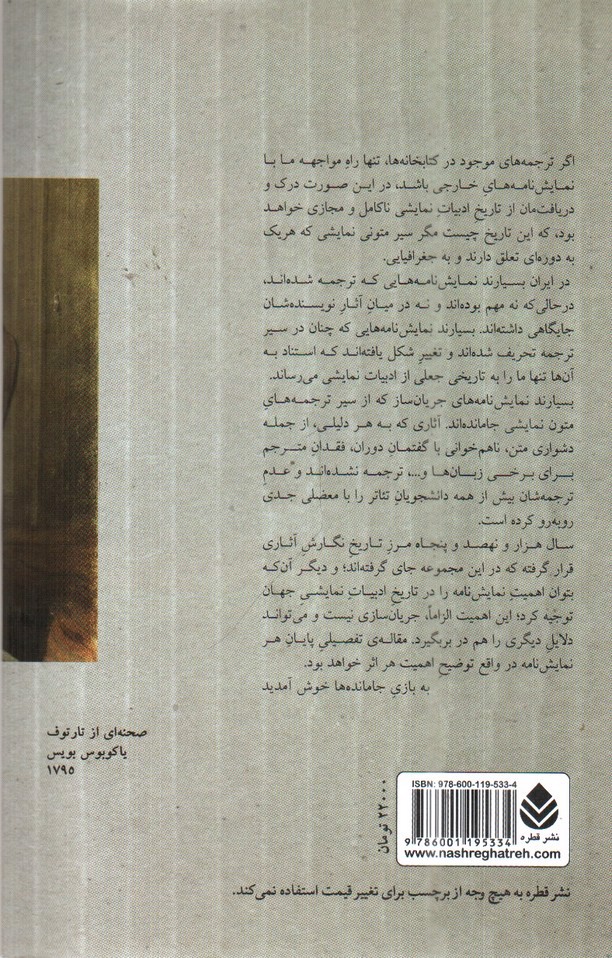 اگر ترجمه‌های موجود در کتابخانه‌ها، تنها راهِ مواجهه ما با
نمایش‌نامه‌هایِ خارجی باشد، در این صورت درک و
دریافت‌مان از تاریخِ ادبیاتِ نمایشی ناکامل و مجازی خواهد
بود، که این تاریخ چیست مگر سیر متونی نمایشی که هریک
به دوره‌ای تعلق دارند و به جغرافیایی.
در ایران بسیارند نمایش‌نامه‌هایی که ترجمه شده‌اند،
درحالی‌که نه مهم بوده‌اند و نه در میانِ آثارِ نویسنده‌شان
جایگاهی داشته‌اند. بسیارند نمایش‌نامه‌هایی که چنان در سیر
ترجمه تحریف شده‌اند و تغییرِ شکل یافته‌اند که استناد به
آن‌ها تنها ما را به تاریخی جعلی از ادبیات نمایشی می‌رساند.
بسیارند نمایش‌نامه‌های جریان‌ساز که از سیر ترجمه‌هایِ
متون نمایشی جامانده‌اند. آثاری که به هر دلیلی، از جمله
دشواری متن، ناهم‌خوانی با گفتمانِ دوران، فقدانِ مترجم
برای برخی زبان‌ها و...، ترجمه نشده‌اند و عدمِ
ترجمه‌شان بیش از همه دانشجویانِ تئاتر را با معضلی جدی
روبه‌رو کرده است.
سال هزار و نهصد و پنجاه مرزِ تاریخِ نگارشِ آثاری
قرار گرفته که در این مجموعه جای گرفته‌اند؛ و دیگر آن‌که
بتوان اهمیتِ نمایش‌نامه را در تاریخِ ادبیاتِ نمایشیِ جهان
توجیه کرد؛ این اهمیت الزاماً، جریان‌سازی نیست و می‌تواند
دلایلِ دیگری را هم در بربگیرد. مقاله‌ی تفصیلیِ پایانِ هر
نمایش‌نامه در واقع توضیحِ اهمیت هر اثر خواهد بود.
به بازیِ جامانده‌ها خوش آمدید
صحنه‌ای از تارتوف
یاکوبوس بویس
۱۷۹۵
ISBN: 978-600-119-533-4
9 786001 195334
www.nashreghatreh.com
نشر قطره
۲۲۰۰۰ تومان
نشر قطره به هیچ وجه از برچسب برای تغییر قیمت استفاده نمی‌کند.